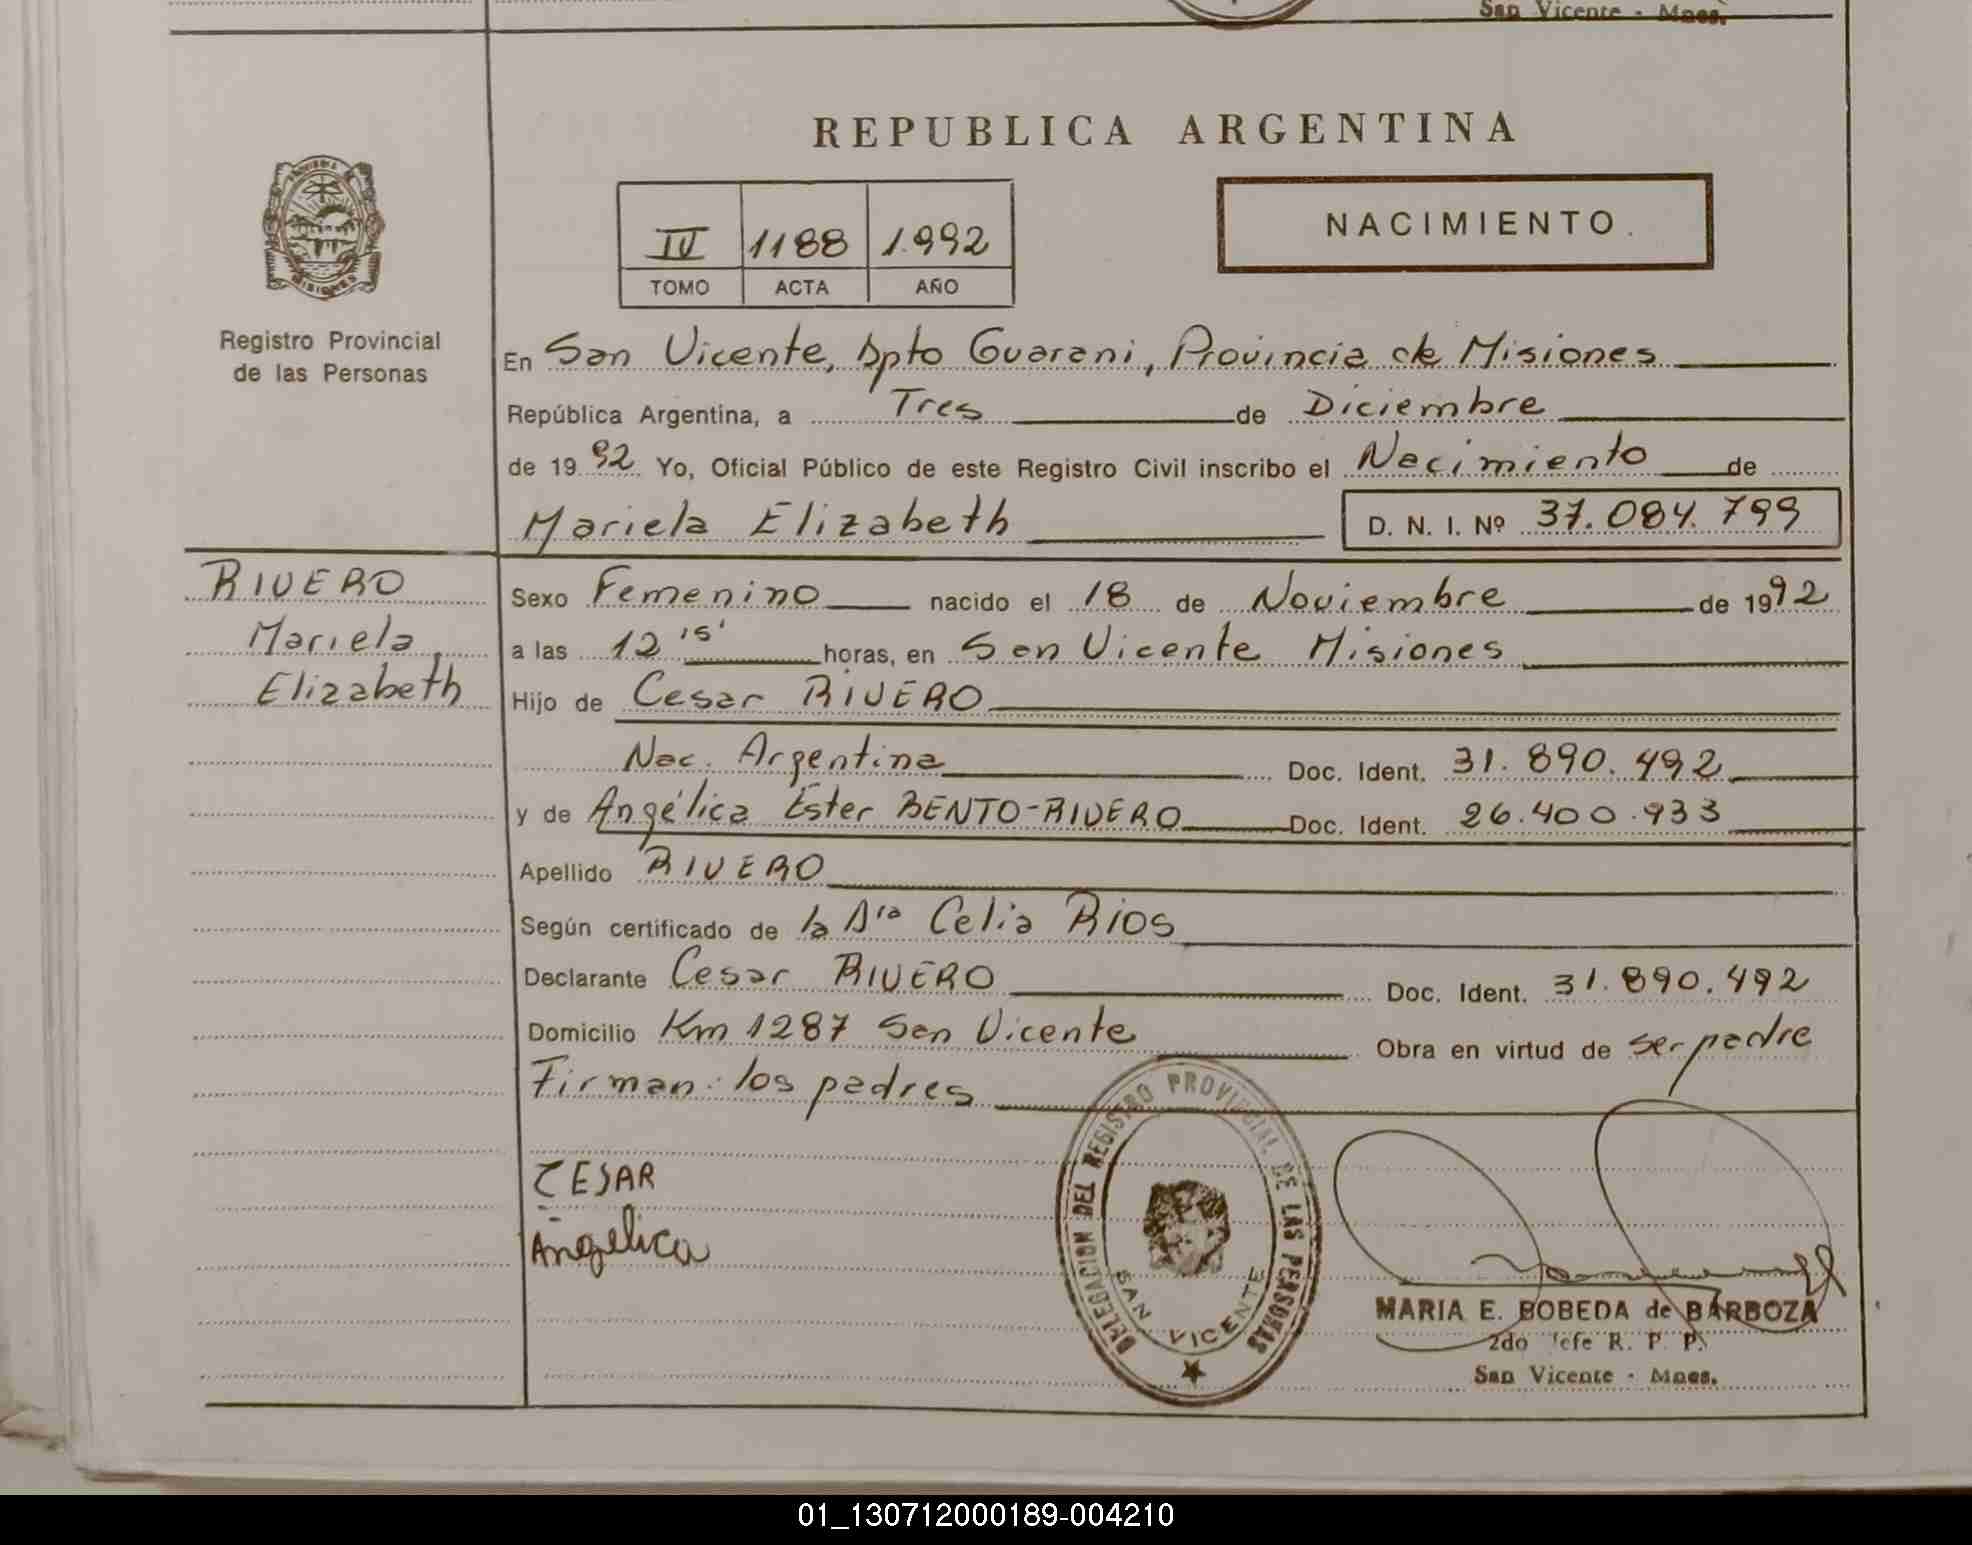 San Vicente - Mnes.
REPUBLICA ARGENTINA
IV 1188 1.992
TOMO ACTA AÑO
NACIMIENTO.
MISIONES
Registro Provincial
de las Personas
En San Vicente, Dpto Guarani, Provincia de Misiones
República Argentina, a Tres de Diciembre
de 1992 Yo, Oficial Público de este Registro Civil inscribo el Nacimiento de
Mariela Elizabeth D. N. I. Nº 37.084.799
RIVERO
Mariela
Elizabeth
Sexo Femenino nacido el 18 de Noviembre de 1992
a las 12 15' horas, en San Vicente Misiones
Hijo de Cesar RIVERO
Nac. Argentina Doc. Ident. 31.890.492
y de Angélica Ester BENTO-RIVERO Doc. Ident. 26.400.933
Apellido RIVERO
Según certificado de la Dra Celia Rios
Declarante Cesar RIVERO Doc. Ident. 31.890.492
Domicilio Km 1287 San Vicente Obra en virtud de ser padre
Firman: los padres
CESAR
Angelica
DELEGACION DEL REGISTRO PROVINCIAL DE LAS PERSONAS
SAN VICENTE
MARIA E. BOBEDA de BARBOZA
2do Jefe R. P. P.
San Vicente - Mnes.
01_130712000189-004210